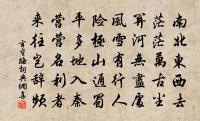 南北東西去
茫茫萬古塵
關河無盡處
風雪有行人
險極山通蜀
平多地入秦
營營名利者
來往豈辭頻